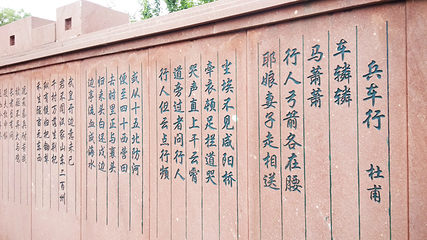 兵车行 杜甫
车辚辚
马萧萧
行人弓箭各在腰
耶娘妻子走相送
尘埃不见咸阳桥
牵衣顿足拦道哭
哭声直上干云霄
道旁过者问行人
行人但云点行频
或从十五北防河
便至四十西营田
去时里正与裹头
归来头白还戍边
边亭流血成海水
武皇开边意未已
君不闻汉家山东二百州
千村万落生荆杞
纵有健妇把锄犁
禾生陇亩无东西